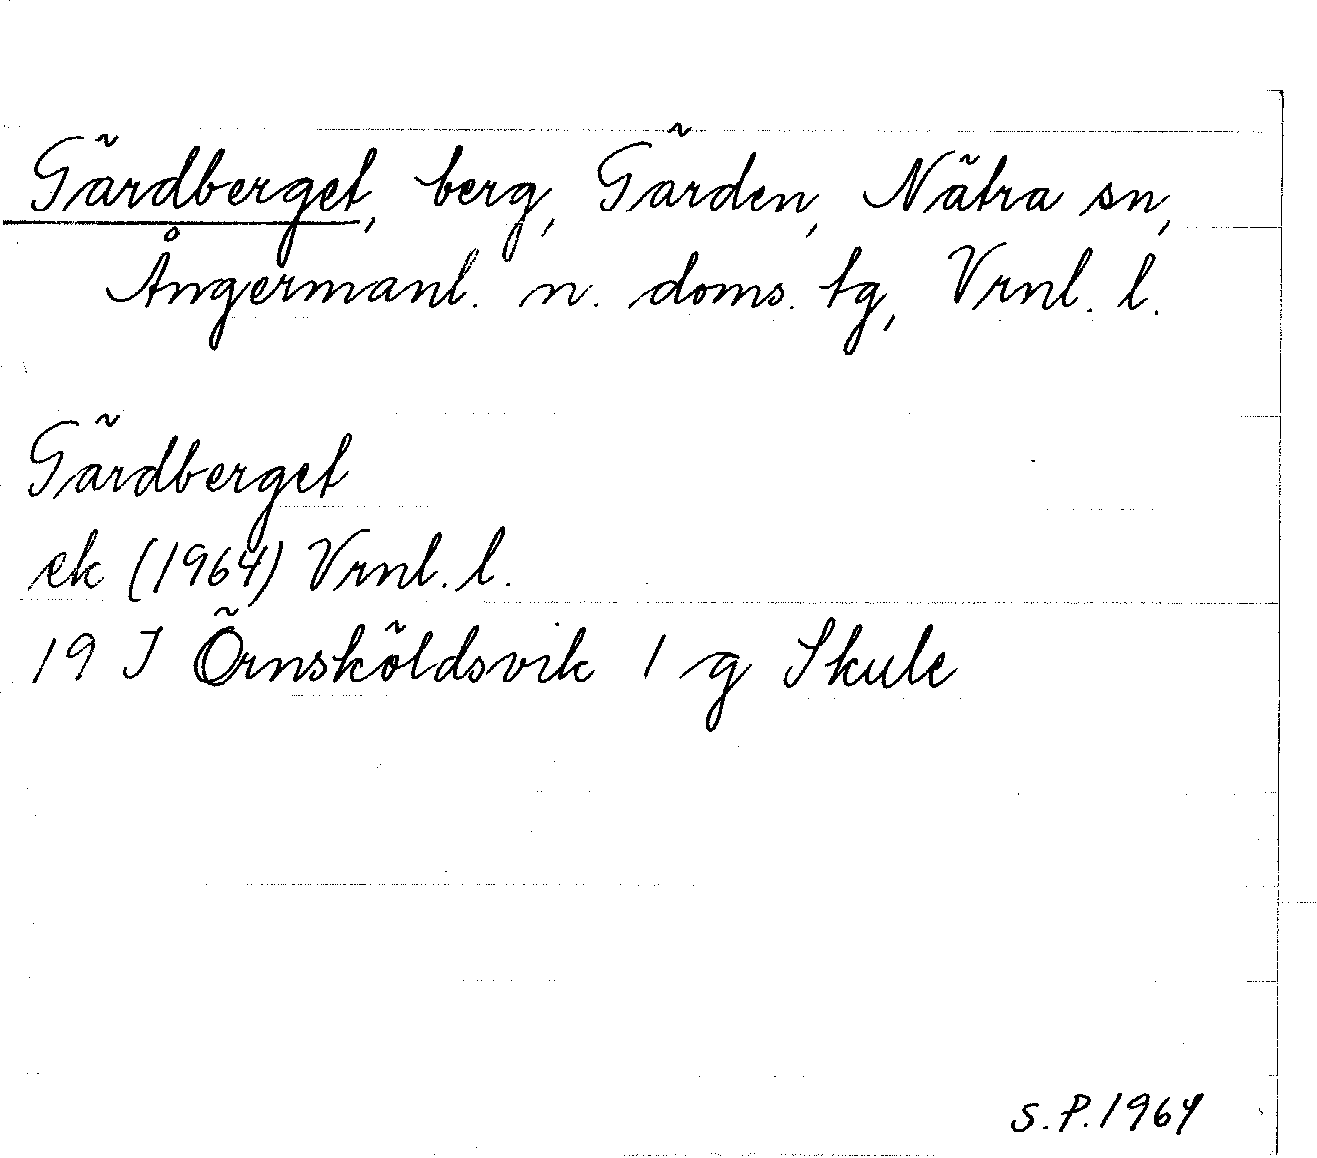 Gärdberget, berg, Gärden, Nätra sn,
Ångermanl. n. doms. tg, Vrnl. l.
Gärdberget
ek (1964) Vrnl. l.
19 J Örnsköldsvik 1 g Skule
S.P.1964